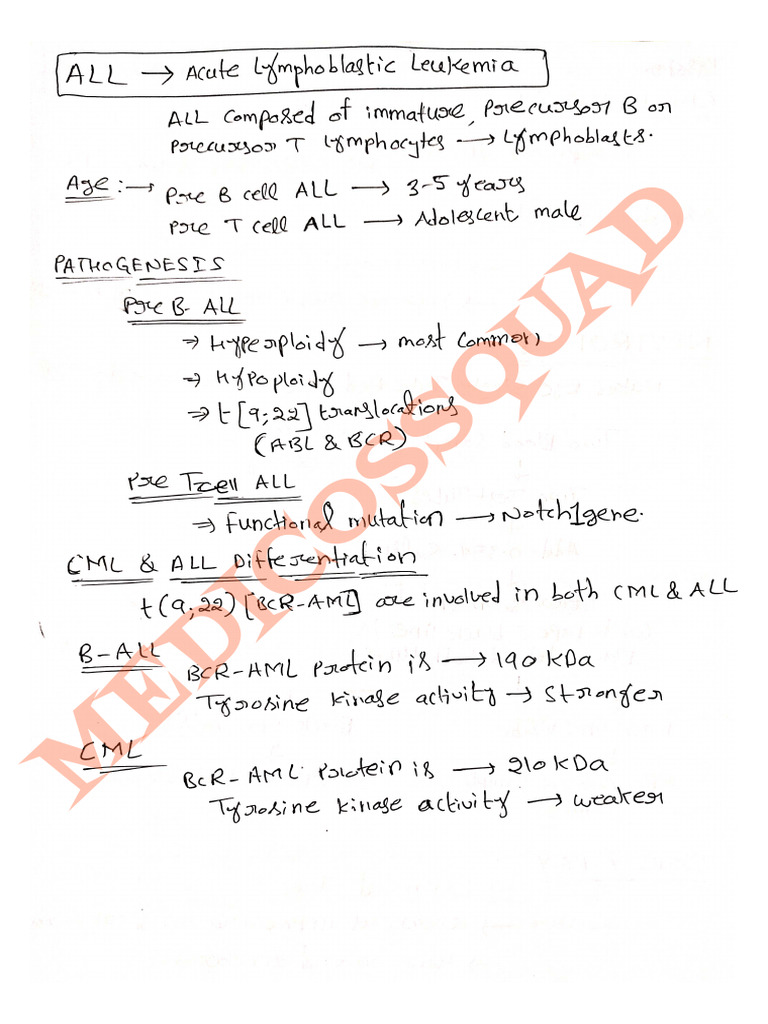 ALL → Acute Lymphoblastic Leukemia
ALL composed of immature, precursor B or
precursor T lymphocytes → Lymphoblasts.
Age :→ Pre B cell ALL → 3-5 years
Pre T cell ALL → Adolescent male
PATHOGENESIS
Pre B- ALL
⇒ Hyperploidy → most common
⇒ Hypoploidy
⇒ t[9;22] translocations
(ABL & BCR)
Pre T-cell ALL
⇒ Functional mutation → Notch1gene.
CML & ALL Differentiation
t(9;22) [BCR-AML] are involved in both CML & ALL
B-ALL
BCR-AML Protein is → 190 KDa
Tyrosine kinase activity → Stronger
CML
BCR-AML Protein is → 210 KDa
Tyrosine kinase activity → weaker
MEDICOSSQUAD